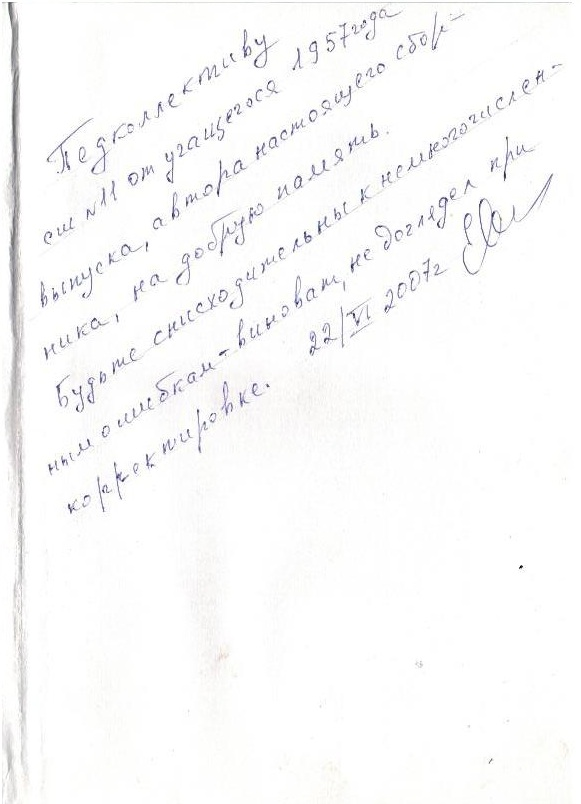 Педколлективу
сш №11 от учащегося 1957 года
выпуска, автора настоящего сбор-
ника, на добрую память.
Будьте снисходительны к немногочислен-
ным ошибкам - виноват, не доглядел при
корректировке. 22/VI 2007г